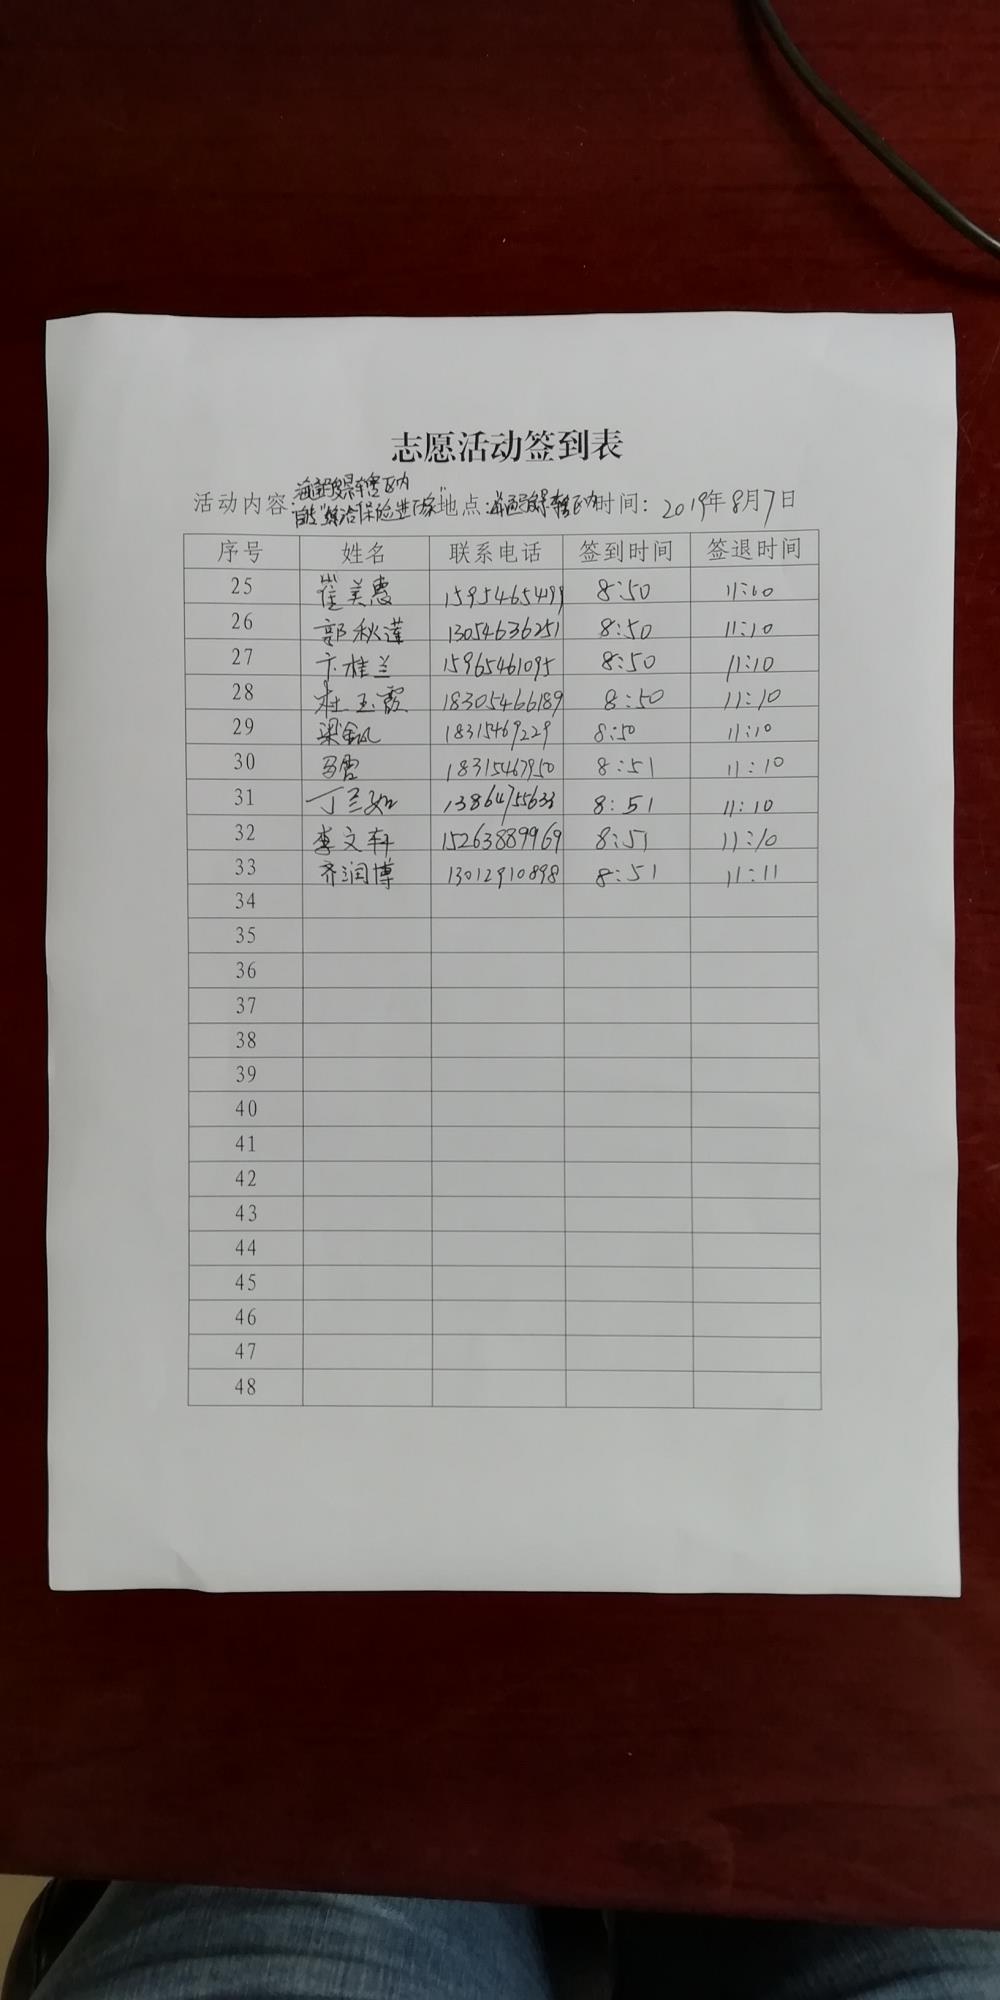 志愿活动签到表
活动内容: 地点: 时间: 2019年8月7日
序号 姓名 联系电话 签到时间 签退时间
25 崔美惠 15954654199 8:50 11:10
26 郭秋莲 13054636251 8:50 11:10
27 卞桂兰 15965461095 8:50 11:10
28 杜玉霞 18305466189 8:50 11:10
29 18315469229 8:50 11:10
30 马雪 18315467950 8:51 11:10
31 丁兰如 13864755633 8:51 11:10
32 李文轩 15263889969 8:51 11:10
33 齐润博 13012910898 8:51 11:11
34
35
36
37
38
39
40
41
42
43
44
45
46
47
48